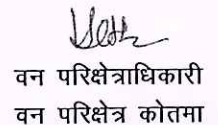 वन परिक्षेत्राधिकारी
वन परिक्षेत्र कोतमा